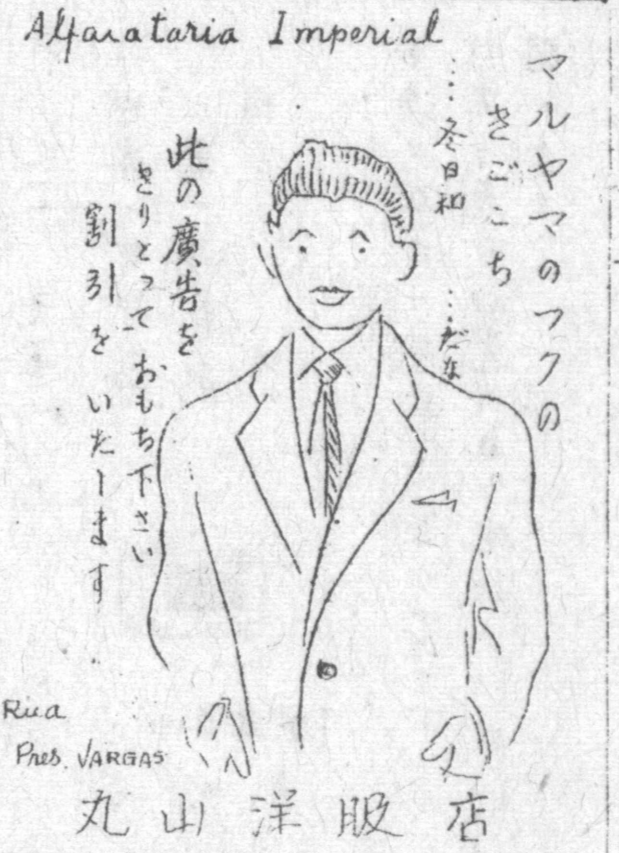 Alfaiataria Imperial
マルヤマのフクの
きごこち
…冬日和
…だな
此の廣告を
きりとっておもち下さい
割引をいたします
Rua
Pres. VARGAS
丸山洋服店